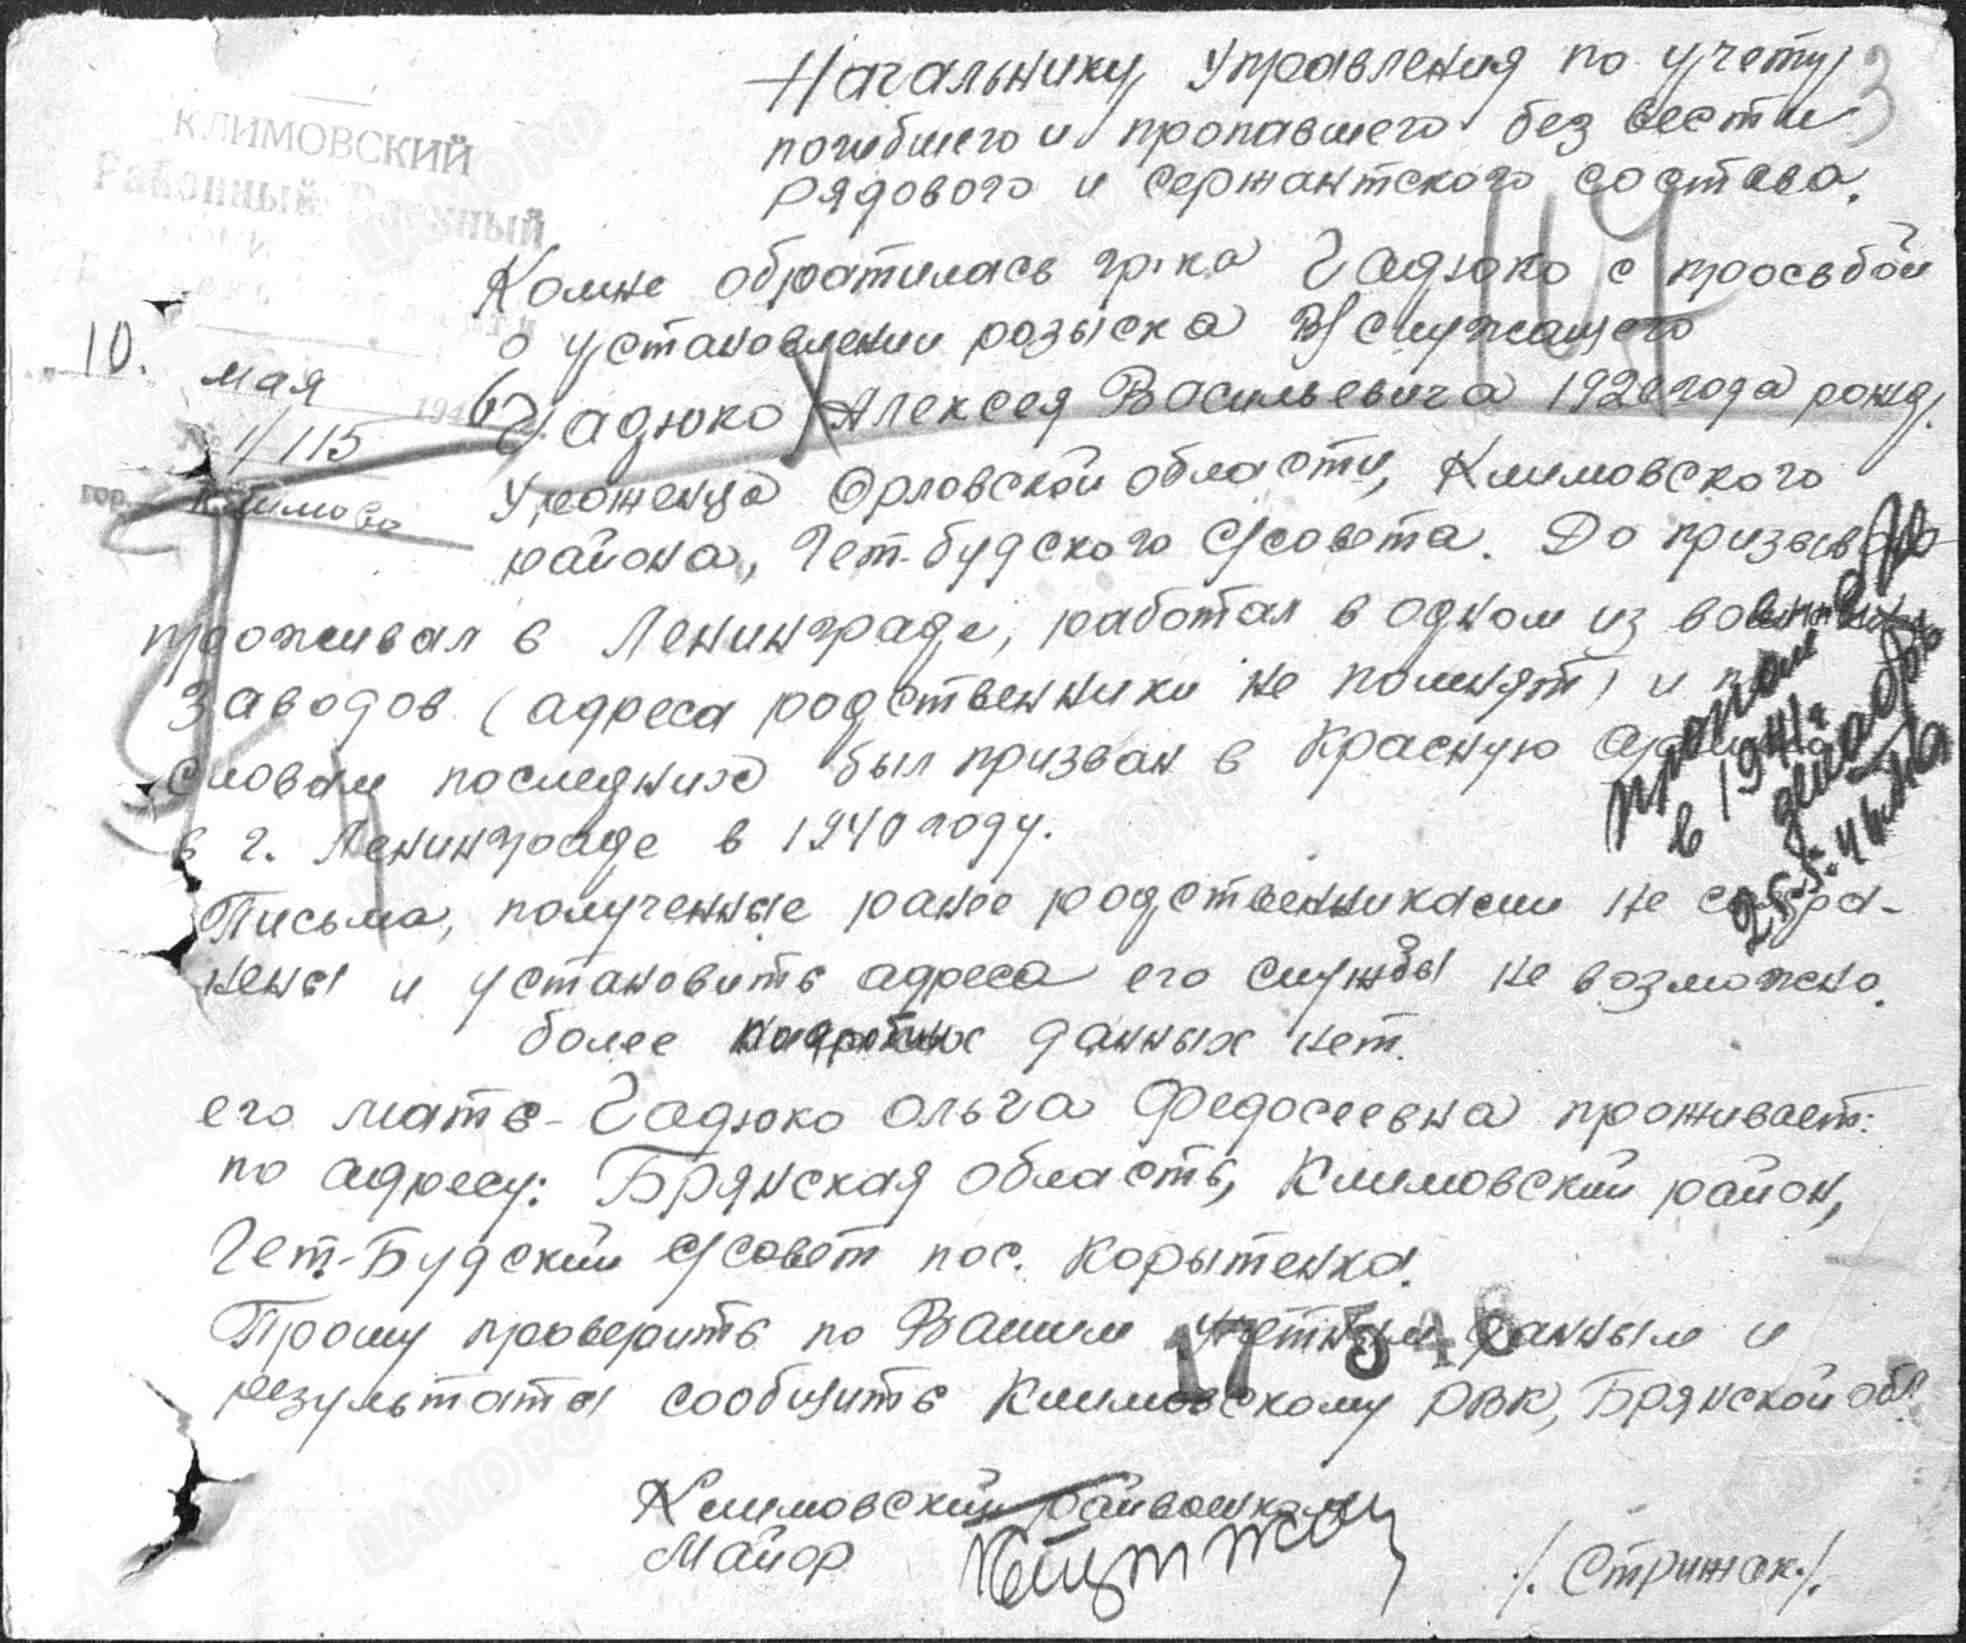 Начальнику Управления по учету
погибшего и пропавшего без вести
рядового и сержантского состава.
3
КЛИМОВСКИЙ
Районный Военный
10.
мая 1946
№ 1/115
гор. Климово
Комне обратилась гр-ка Гадюко с просьбой
о установлении розыска в/служащего
Гадюко Алексея Васильевича 1920 года рожд.
Уроженца Орловской области, Климовского
района, Чет-будского с/совета. До призыва
проживал в Ленинграде, работал в одном из военных
заводов (адреса родственники не помнят) и по
словам последних был призван в Красную армию
в г. Ленинграде в 1940 году.
Письма, полученные ранее родственниками не сохра-
нены и установить адреса его службы не возможно.
более данных нет.
его мать - Гадюко Ольга Федосеевна проживает:
по адресу: Брянская область, Климовский район,
Чет-Будский с/совет пос. Корытенка.
Прошу проверить по Вашим учетным данным и
результаты сообщить Климовскому РВК, Брянской обл.
17 546
Климовский райвоенком
Майор
/.Стрижак./
пропал
в 1941г
декабрь
25.5.46
ЦАМО РФ